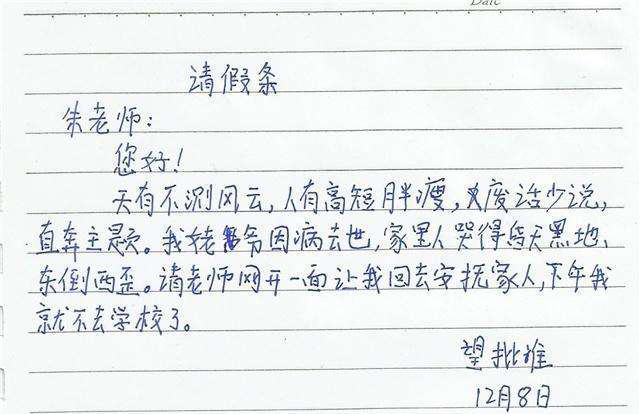 Date
请假条
朱老师:
您好!
天有不测风云,人有高短胖瘦,废话少说,
直奔主题。我姥爷因病去世,家里人哭得昏天黑地、
东倒西歪。请老师网开一面让我回去安抚家人,下午我
就不去学校了。
望批准
12月8日